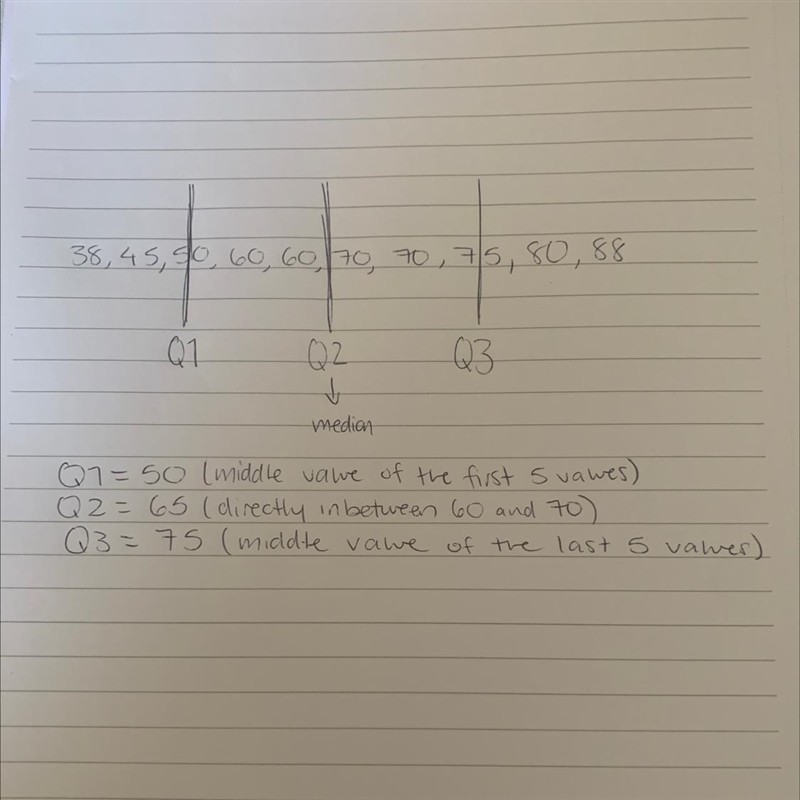 38, 45, 50, 60, 60, 70, 70, 75, 80, 88
Q1 Q2 Q3
↓
median
Q1 = 50 (middle value of the first 5 values)
Q2 = 65 (directly inbetween 60 and 70)
Q3 = 75 (middle value of the last 5 values)